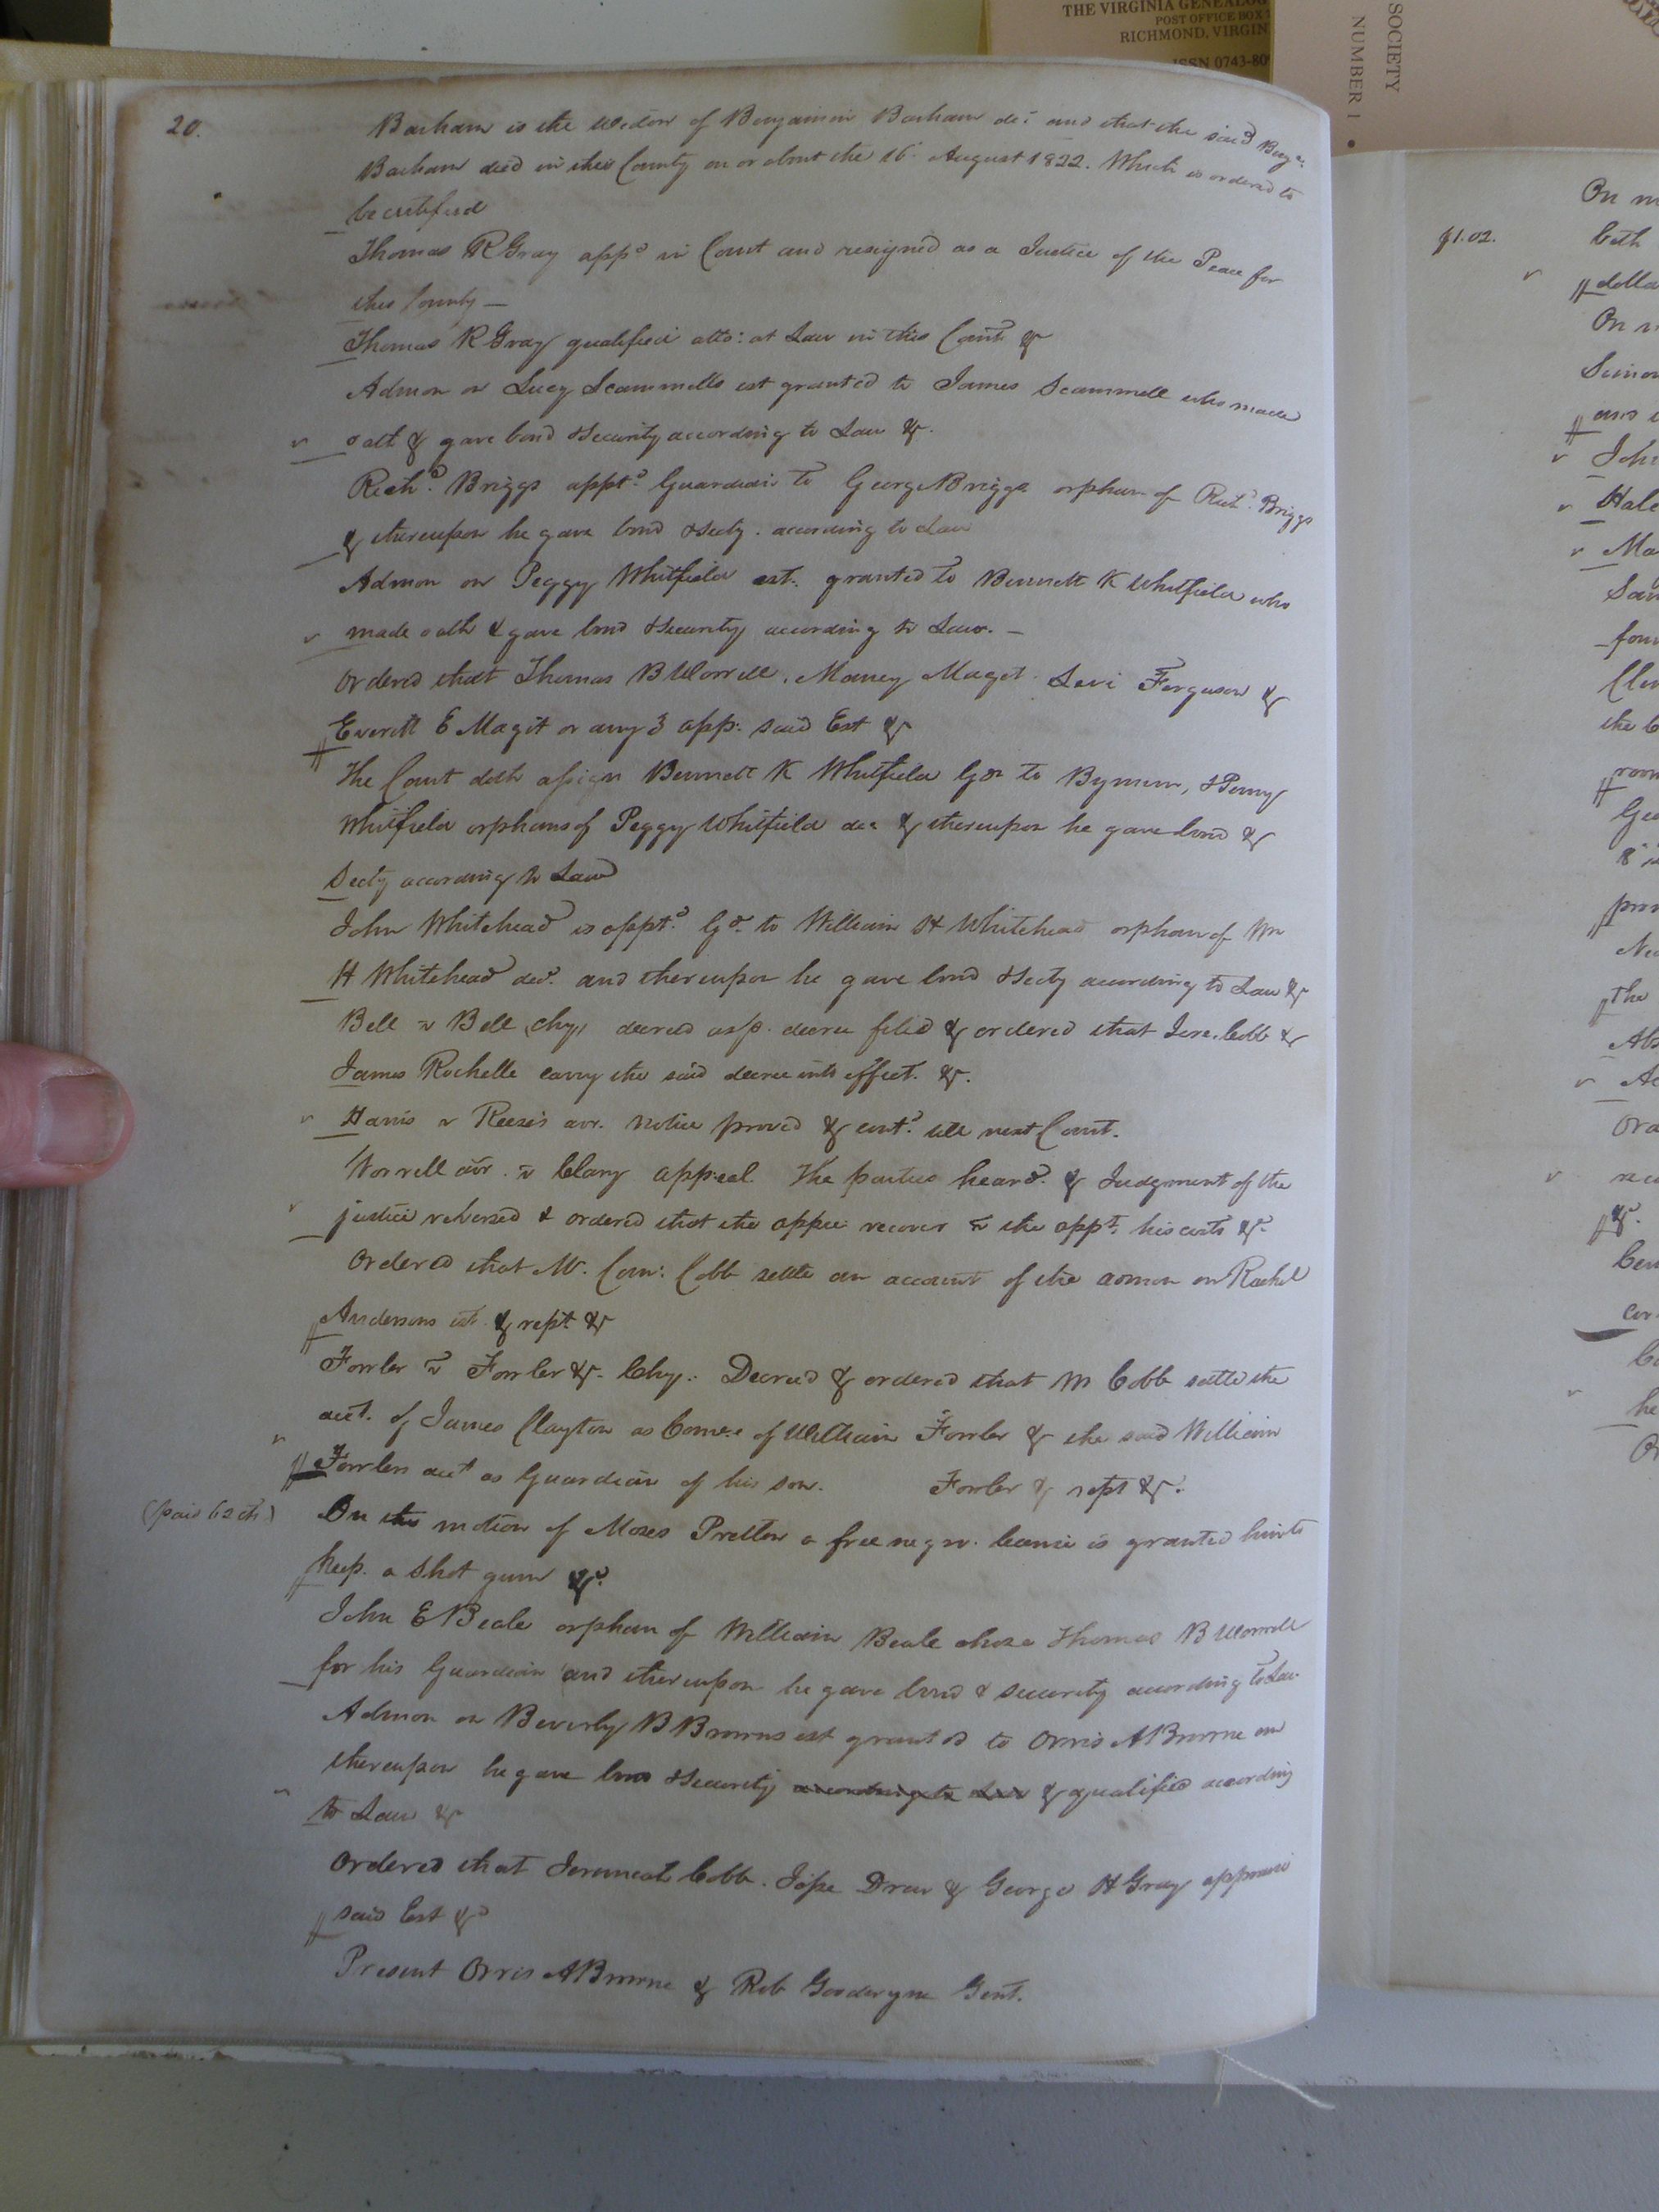 THE VIRGINIA GENEALOG
POST OFFICE BOX
RICHMOND, VIRGIN
ISSN 0743-80
SOCIETY
NUMBER 1
20.
Barham is the widow of Benjamin Barham dec: and that the said Benja:
Barham died in this County on or about the 16: August 1822. Which is ordered to
be certified
Thomas R Gray appd in Court and resigned as a Justice of the Peace for
this County —
Thomas R Gray qualified atto: at Law in this Court &
Admon on Lucy Scammells est granted to James Scammell who made
oath & gave bond & Security according to Law &.
Richd. Briggs apptd. Guardian to George Briggs orphan of Richd. Briggs
& thereupon he gave bond & Secty. according to Law
Admon on Peggy Whitfield est. granted to Bennett K Whitfield who
made oath & gave bond & Security according to Law. —
Ordered that Thomas B Worrell, Maney Maget Levi Ferguson &
Everitt E Magit or any 3 app: said Est &
The Court doth assign Bennett K Whitfield Gdn to & Penny
Whitfield orphans of Peggy Whitfield dec & thereupon he gave bond &
Secty according to Law
John Whitehead is apptd. Gd. to William H Whitehead orphan of Wm
H Whitehead decd. and thereupon he gave bond & Secty according to Law &
Bell v Bell chy decreed as p. decree filed & ordered that Jere. Cobb &
James Rochelle carry the said decree into effect. &.
Harris v Reese's notice proved & contd. till next Court.
Worrell v Clary appeal. The parties heard. & Judgment of the
justice reversed & ordered that the appee recover v the appt. his costs &
Ordered that M. Com: Cobb settle an account of the admon on Rachel
Andersons est. & rept &
Fowler v Fowler &. Chy. Decreed & ordered that M Cobb settle the
acct. of James Clayton as Comee of William Fowler & the said William
Fowlers acct as Guardian of his son. Fowler & rept &.
(paid 62 cts)
On the motion of Moses a free negro. license is granted him to
keep. a shot gun &.
John E Beale orphan of William Beale chose Thomas B Worrell
for his Guardian and thereupon he gave bond & security according to Law
Admon on Beverly B Browns est granted to Orris A Browne
thereupon he gave bond & Security according to Law & qualified according
to Law &
Ordered that Jeremiah Cobb. Jesse Drew & George H Gray appraise
said Est &
Present Orris A Browne & Rob Goodwyn Gent.
$1.02.
On m
both
dolla
On
and
John
Hale
Ma
fou
the
Geo
8
prov
the
Abs
Ord
rec
&.
he